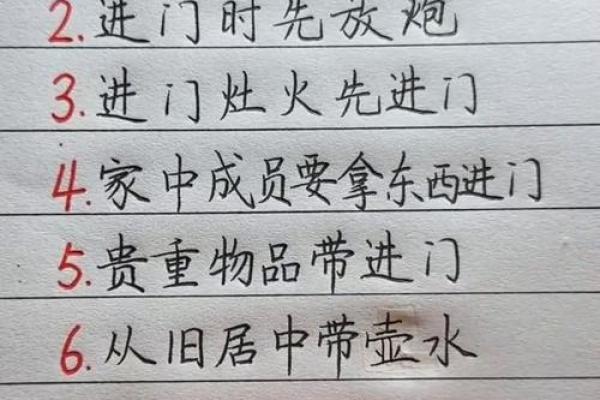 2.进门时先放炮
3.进门灶火先进门
4.家中成员要拿东西进门
5.贵重物品带进门
6.从旧居中带壶水